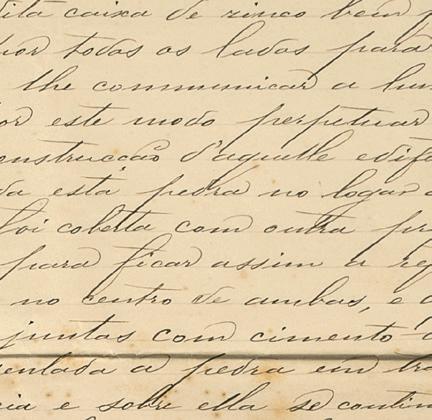 dita caixa de zinco bem p
por todos os lados para
lhe communicar a hum
or este modo perpetuar
onstrucção d'aquelle edif
da esta pedra no logar
foi coberta com outra p
para ficar assim a re
no centro de ambas, e
juntas com cimento
entada a pedra em
cia e sobre ella se contin